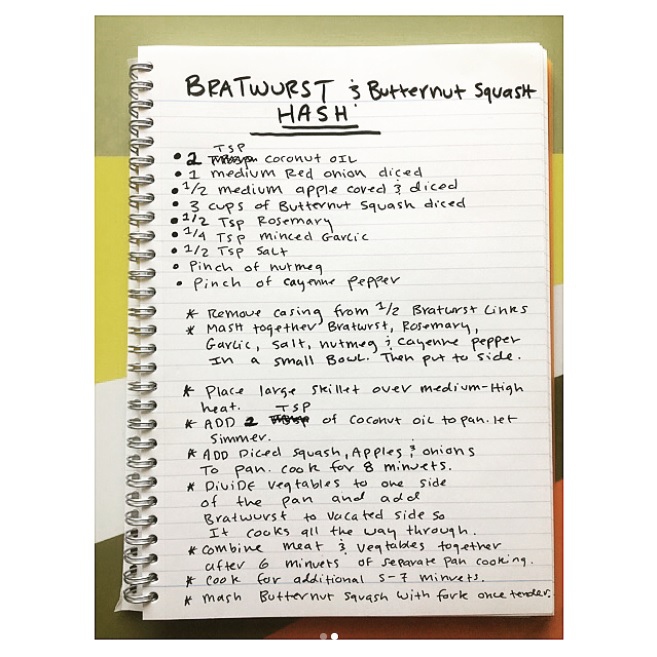 BRATWURST & Butternut Squash
HASH
TSP
• 2 coconut oil
• 1 medium Red onion diced
• 1/2 medium apple cored & diced
• 3 cups of Butternut Squash diced
• 1/2 Tsp Rosemary
• 1/4 Tsp minced Garlic
• 1/2 Tsp Salt
• Pinch of nutmeg
• Pinch of cayenne pepper
* Remove casing from 1/2 Bratwrst Links
* Mash together Bratwrst, Rosemary,
Garlic, Salt, nutmeg & Cayenne pepper
In a small Bowl. Then put to side.
* Place large skillet over medium-High
heat.
TSP
* ADD 2 of coconut oil to pan. let
simmer.
* ADD Diced squash, Apples & onions
To pan. cook for 8 minuets.
* Divide vegtables to one side
of the pan and add
Bratwurst to vacated side so
It cooks all the way through.
* combine meat & vegtables together
after 6 minuets of separate pan cooking.
* cook for additional 5-7 minuets.
* mash Butternut squash with fork once tender.